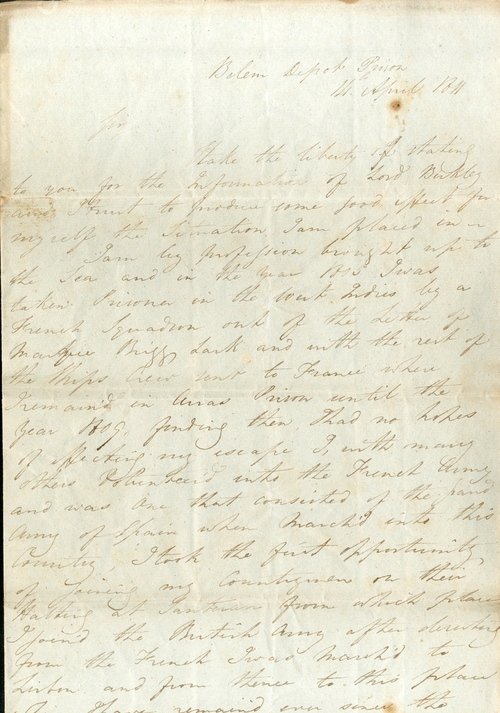 Belem Depot Prison
14 April 1811
Sir
I take the liberty of stating
to you for the Information of Lord Berkley
and I trust to produce some good effect for
myself the Situation I am placed in
I am by profession brought up to
the Sea and in the year 1805 I was
taken Prisoner in the West Indies by a
French Squadron out of the Letter of
Marque Brigg Lark and with the rest of
the Ships Crew sent to France where
I remain'd in Arras Prison until the
Year 1809, finding then I had no hopes
of effecting my escape I, with many
others Volunteer'd into the French Army
and was one that consisted of the
Army of Spain when March'd into this
Country, I took the first opportunity
of joining my Countrymen on their
Halting at Santarem from which place
I join'd the British Army after deserting
from the French I was March'd to
Lisbon and from thence to this place
I have remain'd ever since the